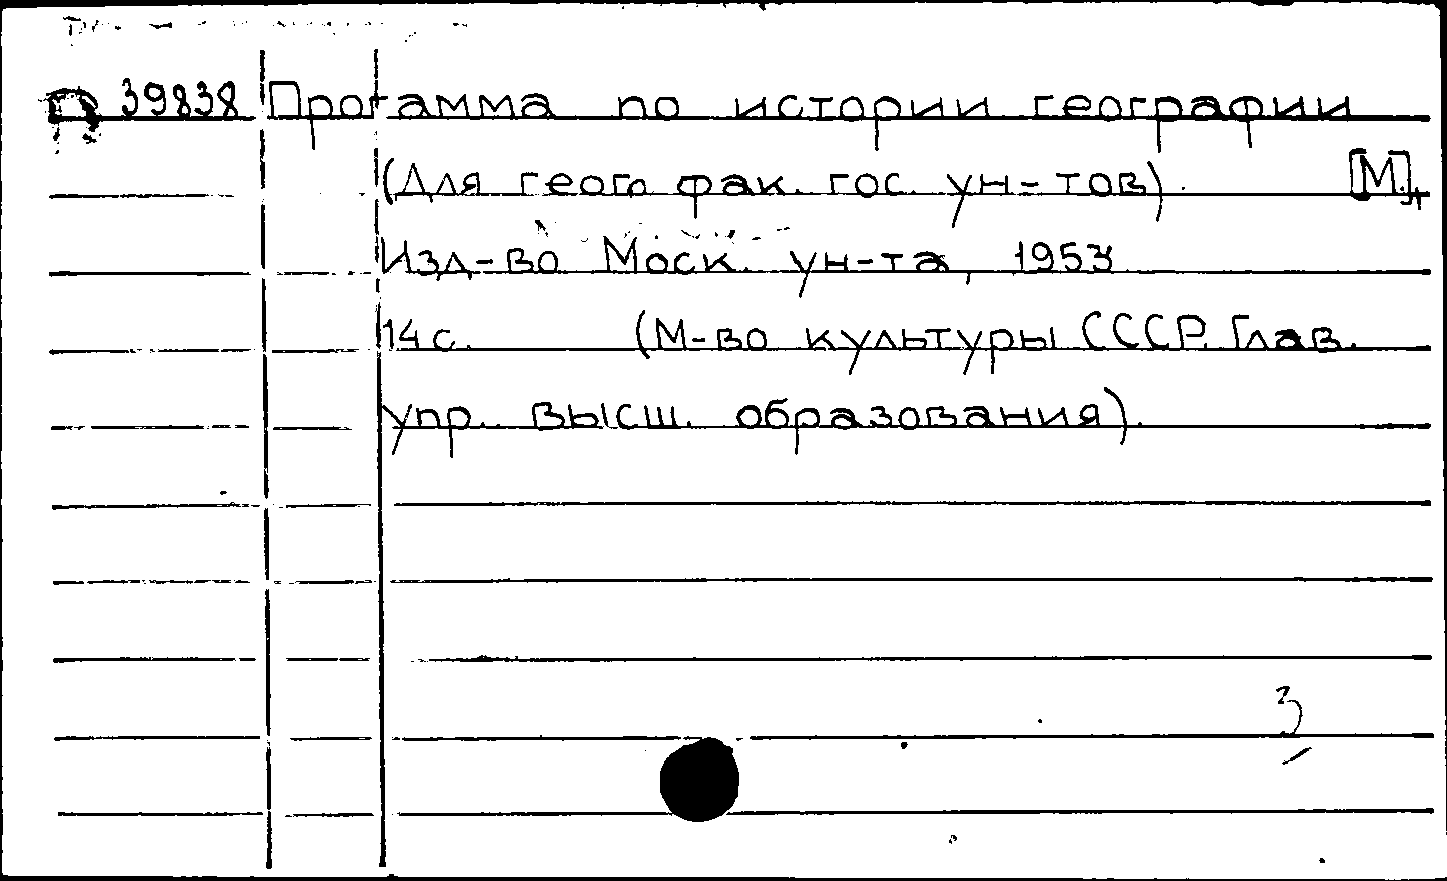 П 39838 Программа по истории географии
(Для геогр. фак. гос. ун-тов). [М],
Изд-во Моск. ун-та, 1953
14 с. (М-во культуры СССР. Глав.
упр. высш. образования).
3